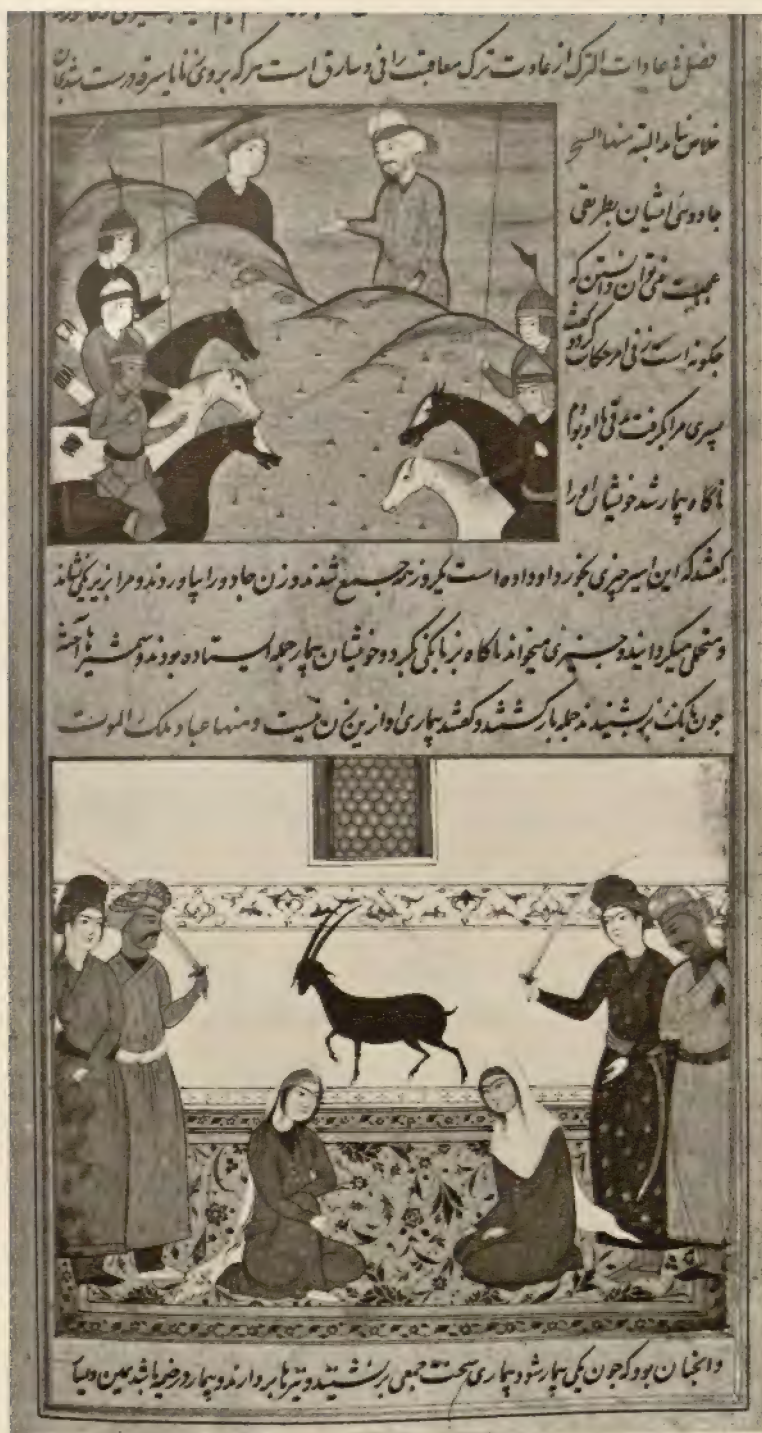 فصل فی عادات الترک از عادت ترک معاقبت زانی و سارق است هر که بروی زنا یا سرقه درست شد بجان
خلاص نیابد البته منها السحر
جادوئی ایشان بطریقی
عجیبست نمی توان دانستن که
چکونه است زنی امر حکایت کرد و گفت
پسری مرا بگرفت مدتی با او بودم
ناکاه بیمار شد خویشان او را
گفتند که این اسیر چیزی بخورد او داده است یکروز همه جمع شدند و زن جادو را بیاوردند و مرا بزیر یکی نشاند
و میگردانیدو چیزی میخواند ناکاه بز بانکی کرد و خویشان بیمار جمله ایستاده بودند و شمشیرها آخته
جون بانک بز بشنیدند جمله بازکشتند و گفتند بیماری او ازین زن نیست و منها عیاد ملک الموت
و انجنان بود که جون یکی بیمار شود بیماری سخت جمعی برنشینند و تیرها بردارند و بیمار در خیمه باشد بمین و